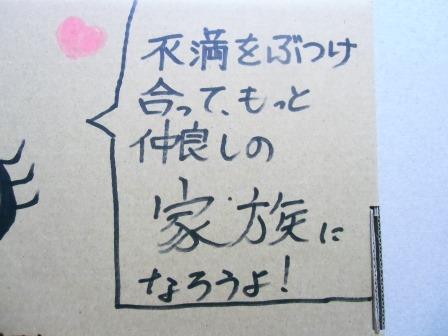 不満をぶつけ
合って、もっと
仲良しの
家族に
なろうよ!